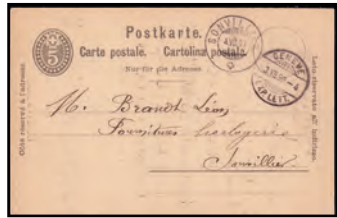 Postkarte.
Carte postale. Cartolina postale.
Nur für die Adresse
5
Côté réservé à l'adresse.
Lato riservato all' indirizzo.
SONVILLIER
GENÈVE
EXP. LETT.
M. Brandt Léon
Fournitures horlogerie
Sonvillier